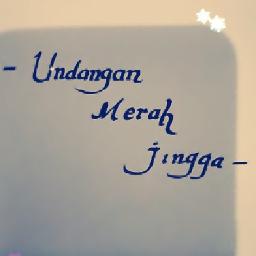 - Undangan
Merah
jingga -